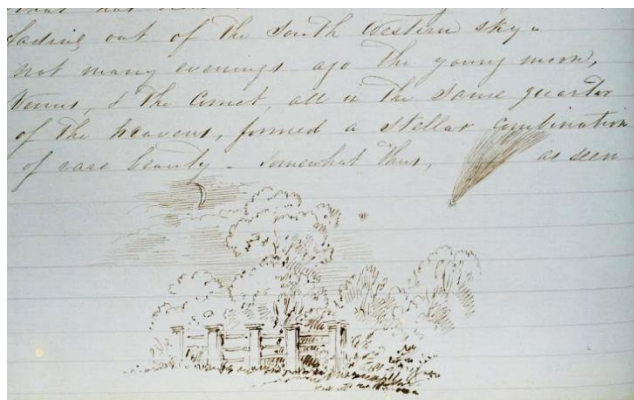 fading out of the South Western sky.
not many evenings ago the young moon,
Venus, & the Comet, all in the same quarter
of the heavens, formed a stellar combination
of rare beauty - Somewhat thus, as seen